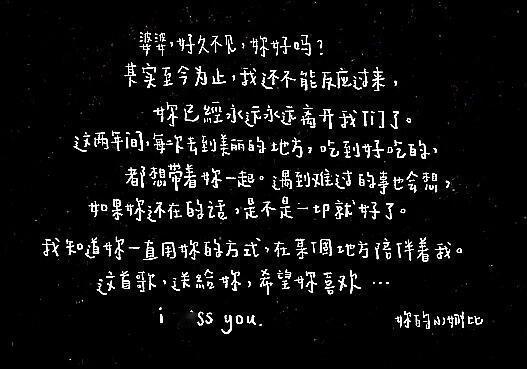 婆婆,好久不見,妳好吗?
其实至今为止,我还不能反应过来,
妳已經永远永远离开我们了。
这两年间,每次去到美丽的地方,吃到好吃的,
都想带着妳一起。遇到难过的事也会想,
如果妳还在的话,是不是一切就好了。
我知道妳一直用妳的方式,在某個地方陪伴着我。
这首歌,送給妳,希望妳喜欢…
i ss you.
妳的小娜比